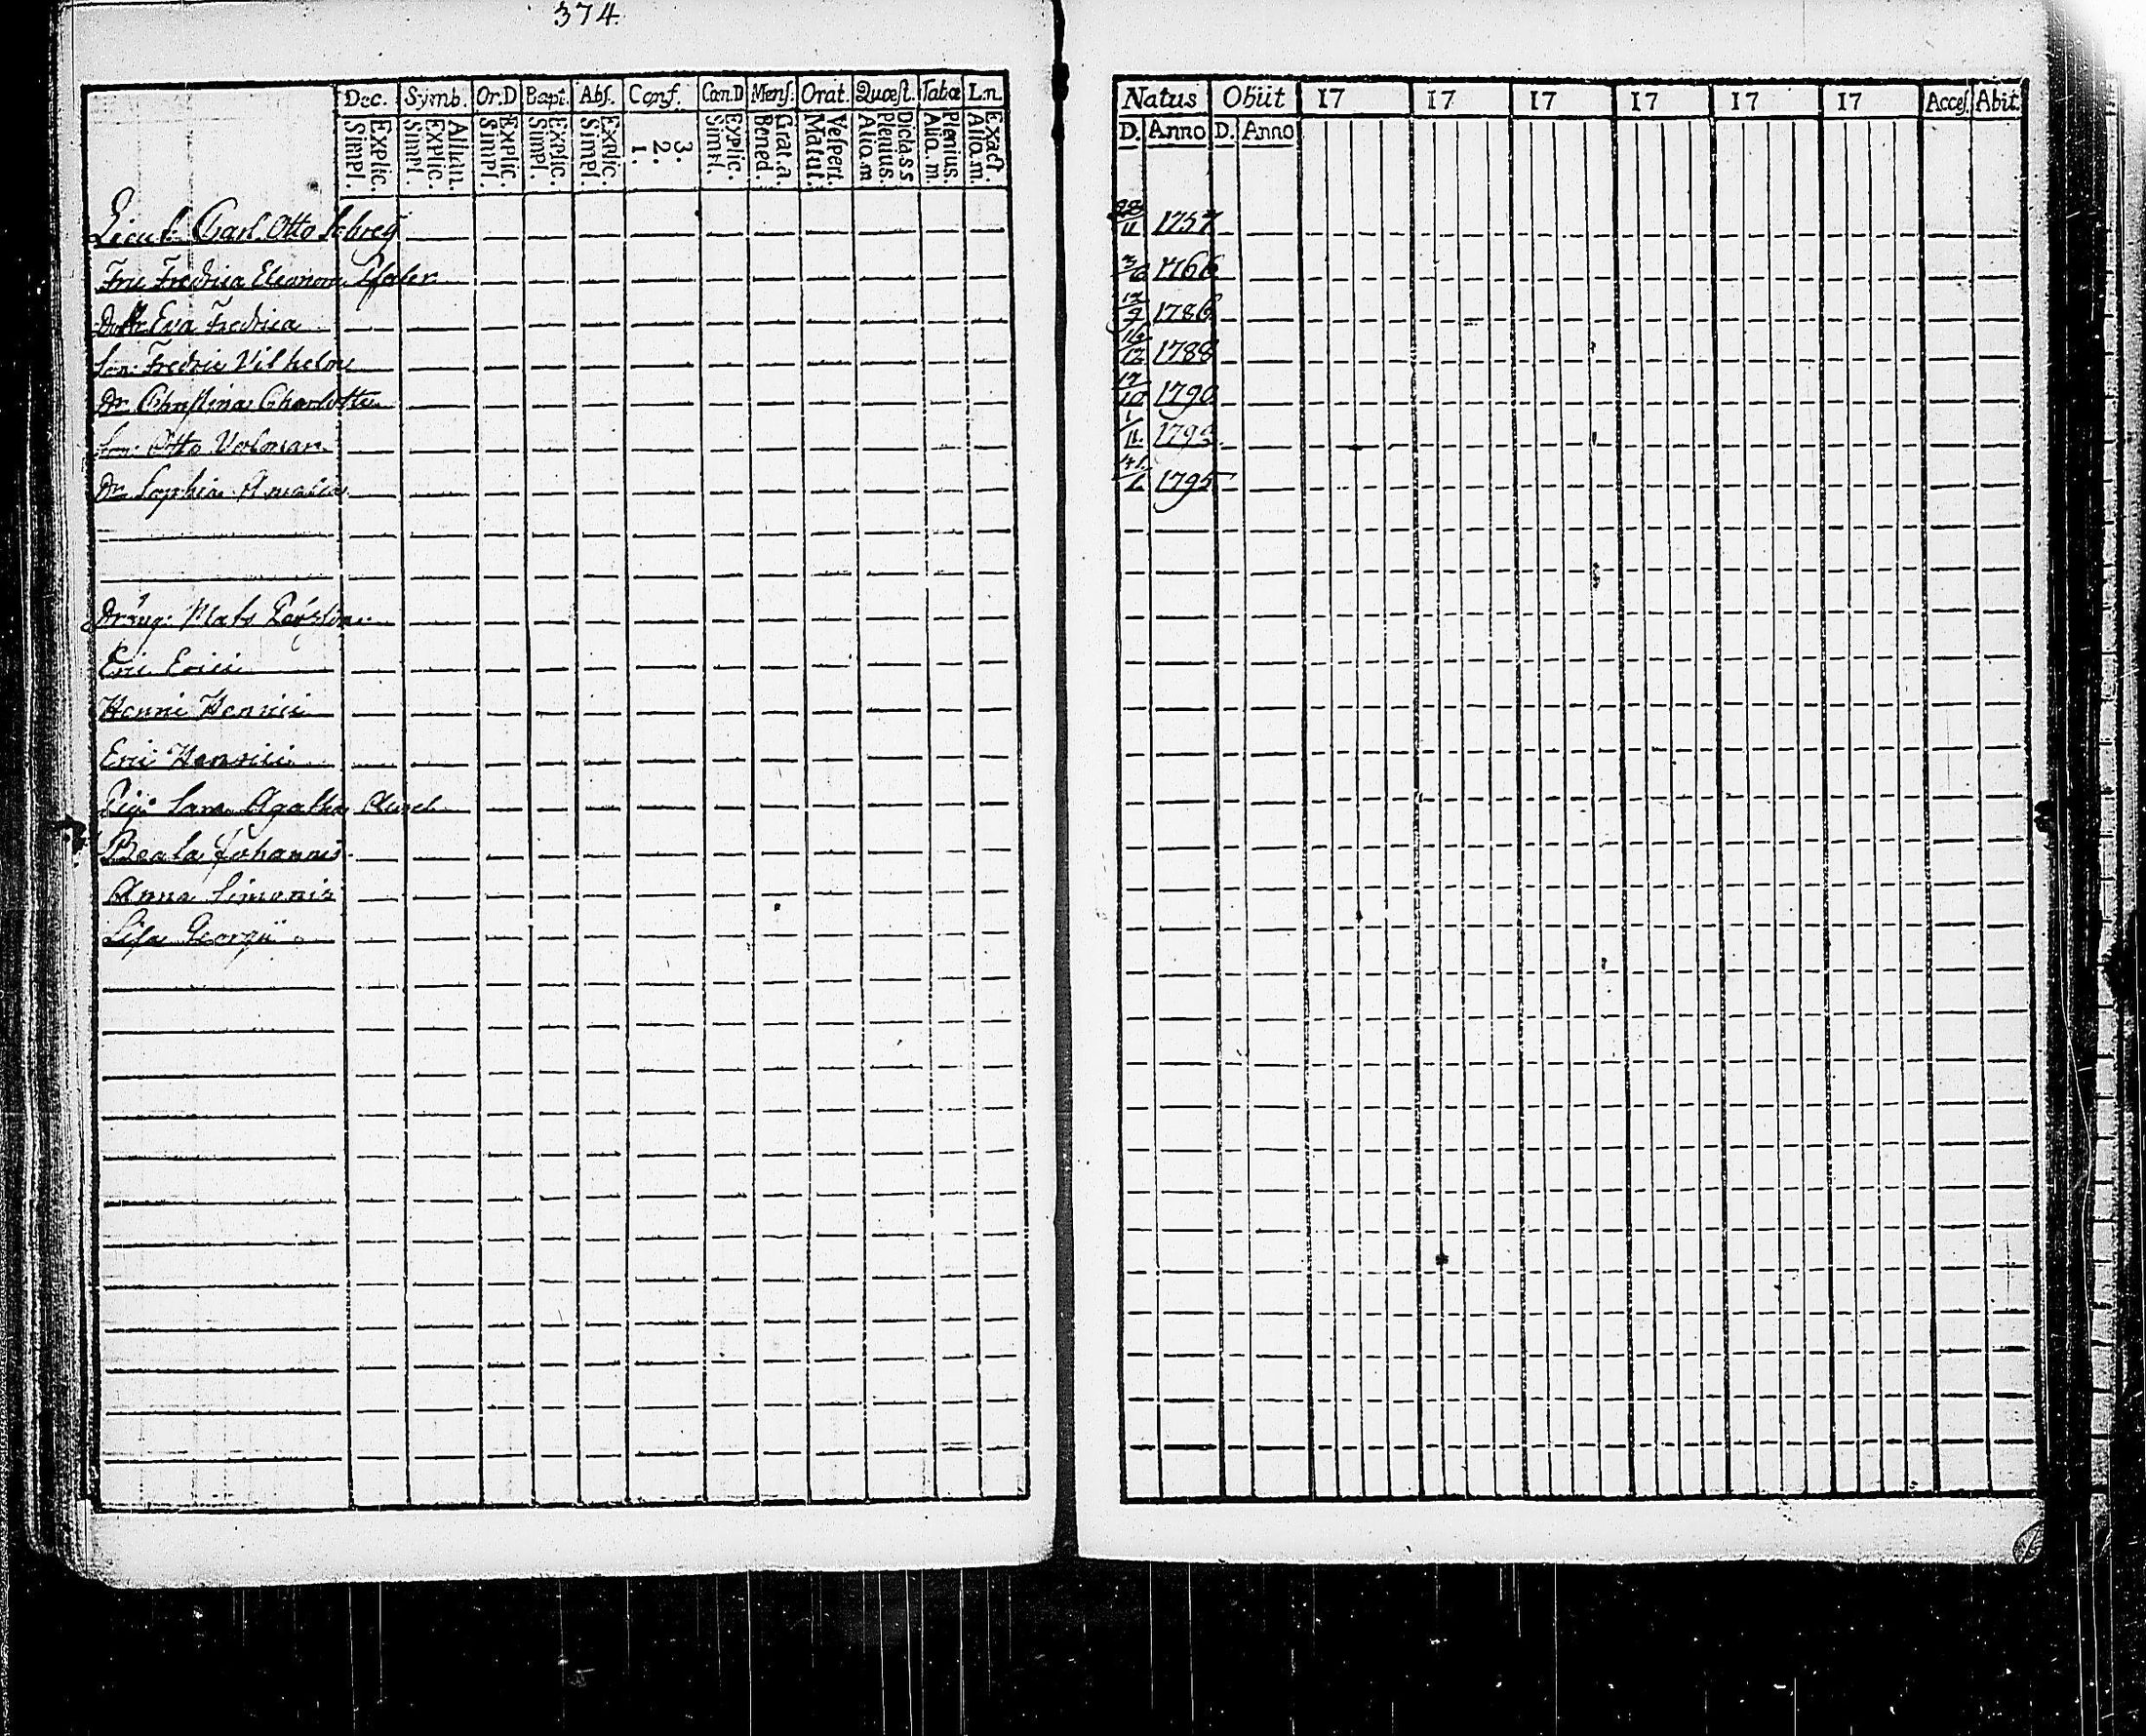 374.
Dec. Symb. Or.D Bapt. Abs. Conf. Can.D Mens. Orat. Quæst. Tabæ L.n.
Simpl. Explic. Simpl. Explic. Athan. Simpl. Explic. Simpl. Explic. Simpl. Explic. 1. 2. 3. Simpl. Explic. Bened. Grat.a. Matut. Vespert. Alio.m Plenius. Dicta.s.s Alio.m. Plenius. Alio.m. Exact.
Lieut: Carl Otto
Fru Fredrica Eleonora
Dottr Eva Fredrica
Son: Fredric Vilhelm
Dr Christina Charlotta
Son: Otto
Dr Sophia Amalia
Dräng: Mats
Eric Erici
Henric Henrici
Eric Henrici
Pig: Sara Agatha
Beata Johannis
Anna Simonis
Lisa Georgii
Natus Obiit 17 17 17 17 17 17 Acces. Abit.
D. Anno D. Anno
28/11 1757
3/6 1766
12/9 1786
16/12 1788
17/10 1790
1/11 179
1795